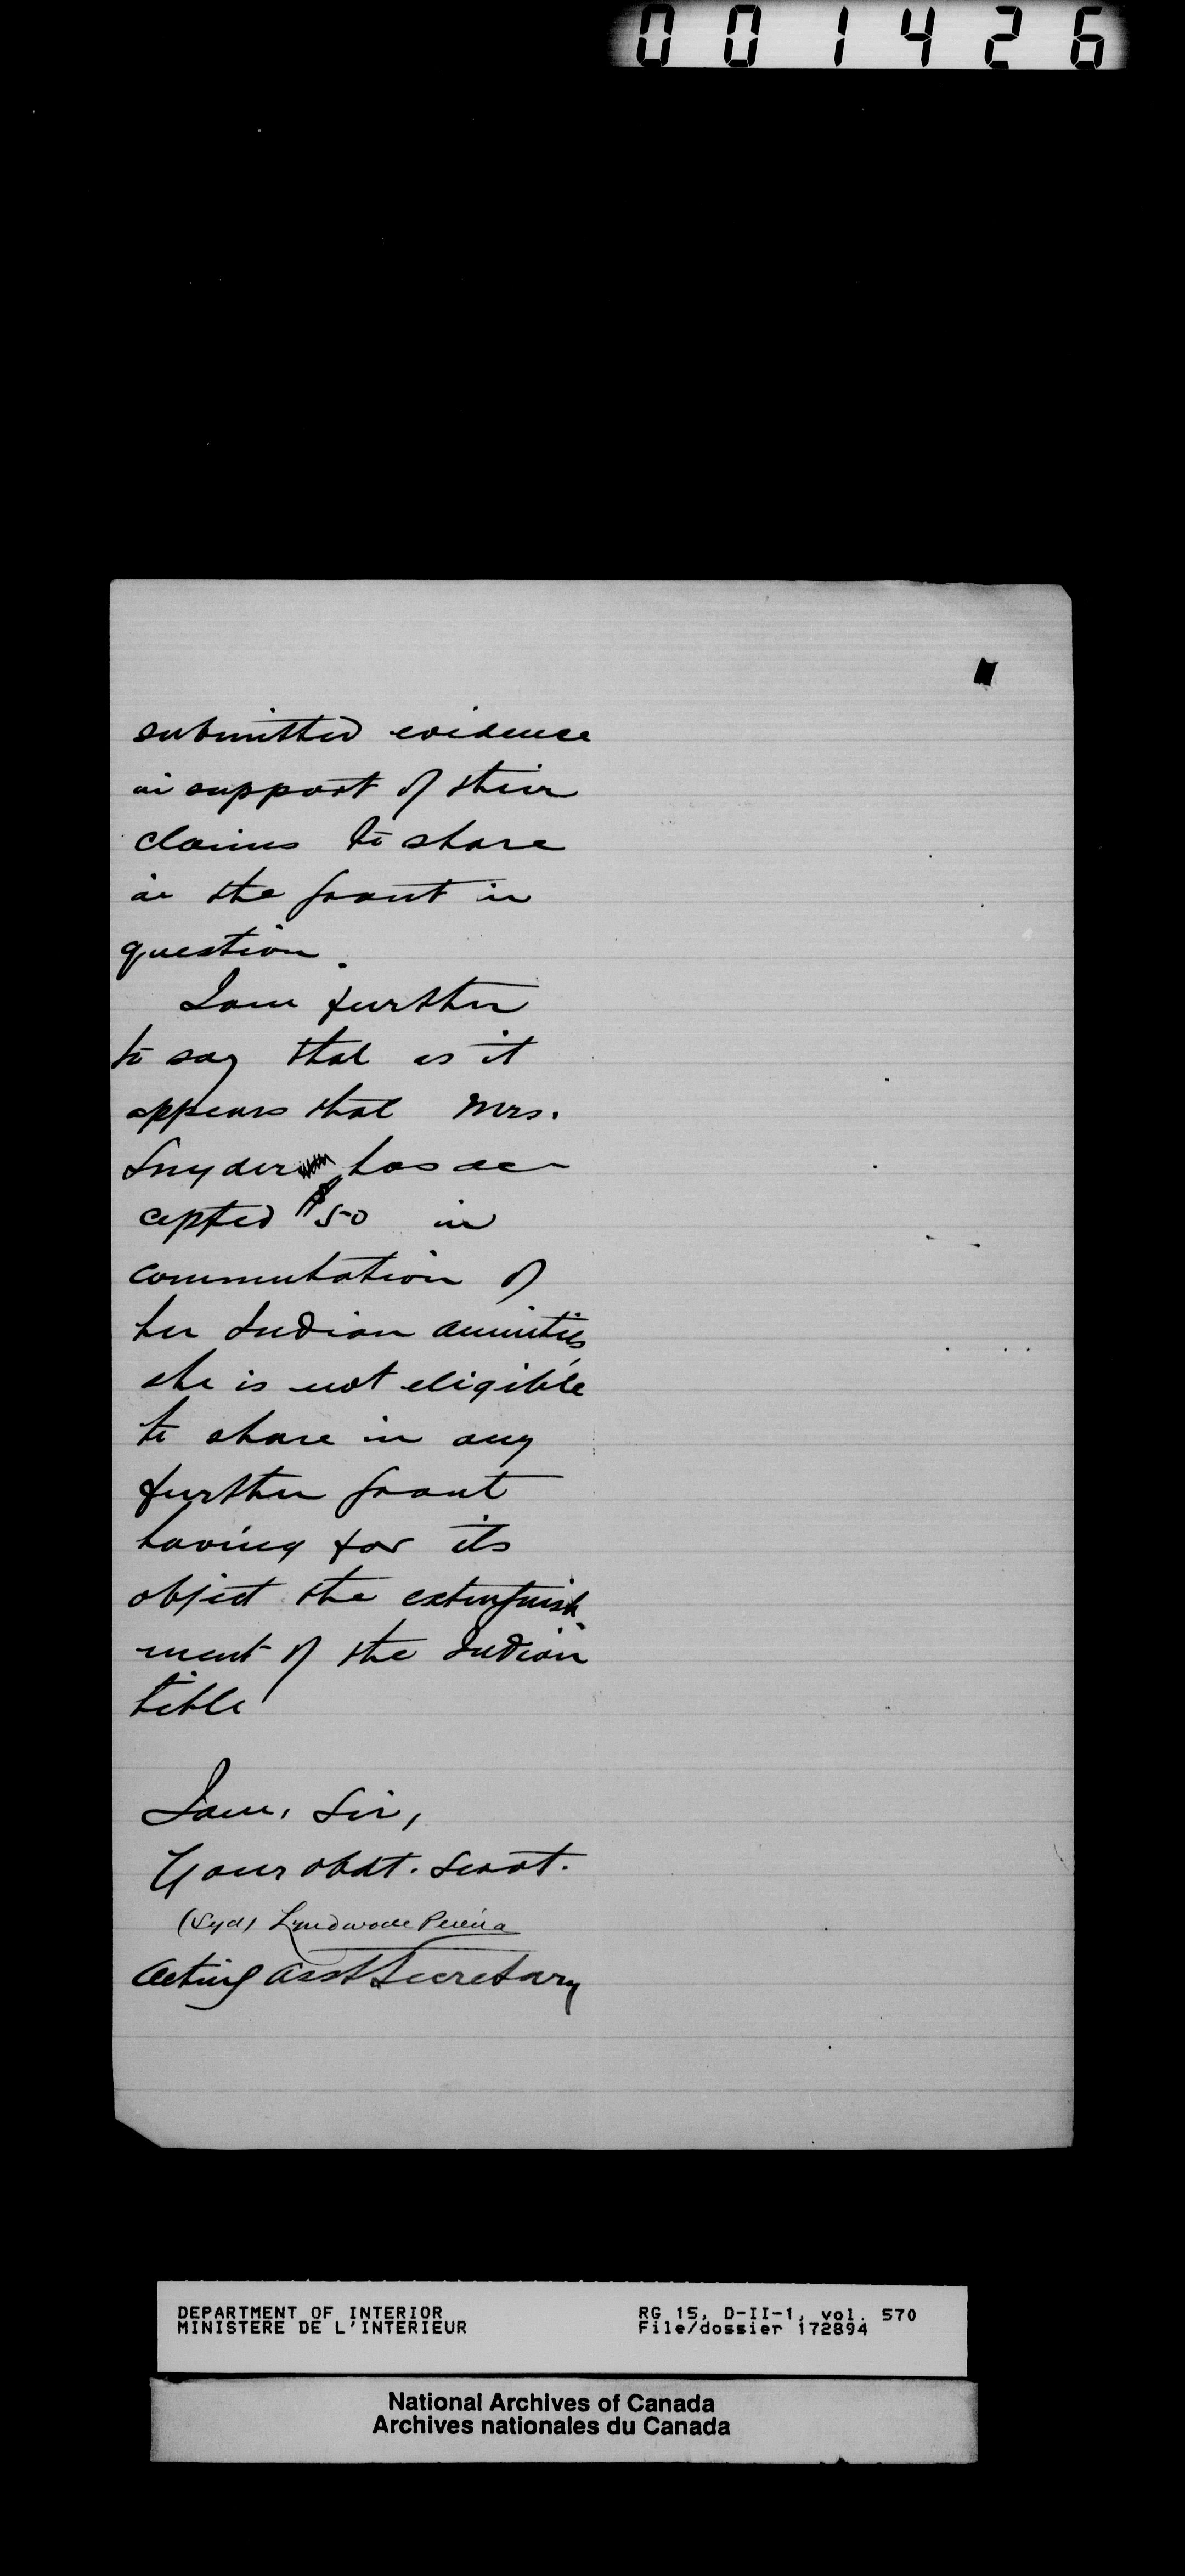 001426
submitted evidence
in support of their
claims to share
in the grant in
question.
I am further
to say that as it
appears that Mrs.
Snyder has ac-
cepted $50 in
commutation of
her Indian annuities,
she is not eligible
to share in any
further grant
having for its
object the extinguish-
ment of the Indian
title
I am, Sir,
Your obdt. servt.
(Sgd) Lyndwode Pereira
Acting Asst Secretary
DEPARTMENT OF INTERIOR
MINISTERE DE L'INTERIEUR
RG 15, D-II-1, vol. 570
File/dossier 172894
National Archives of Canada
Archives nationales du Canada